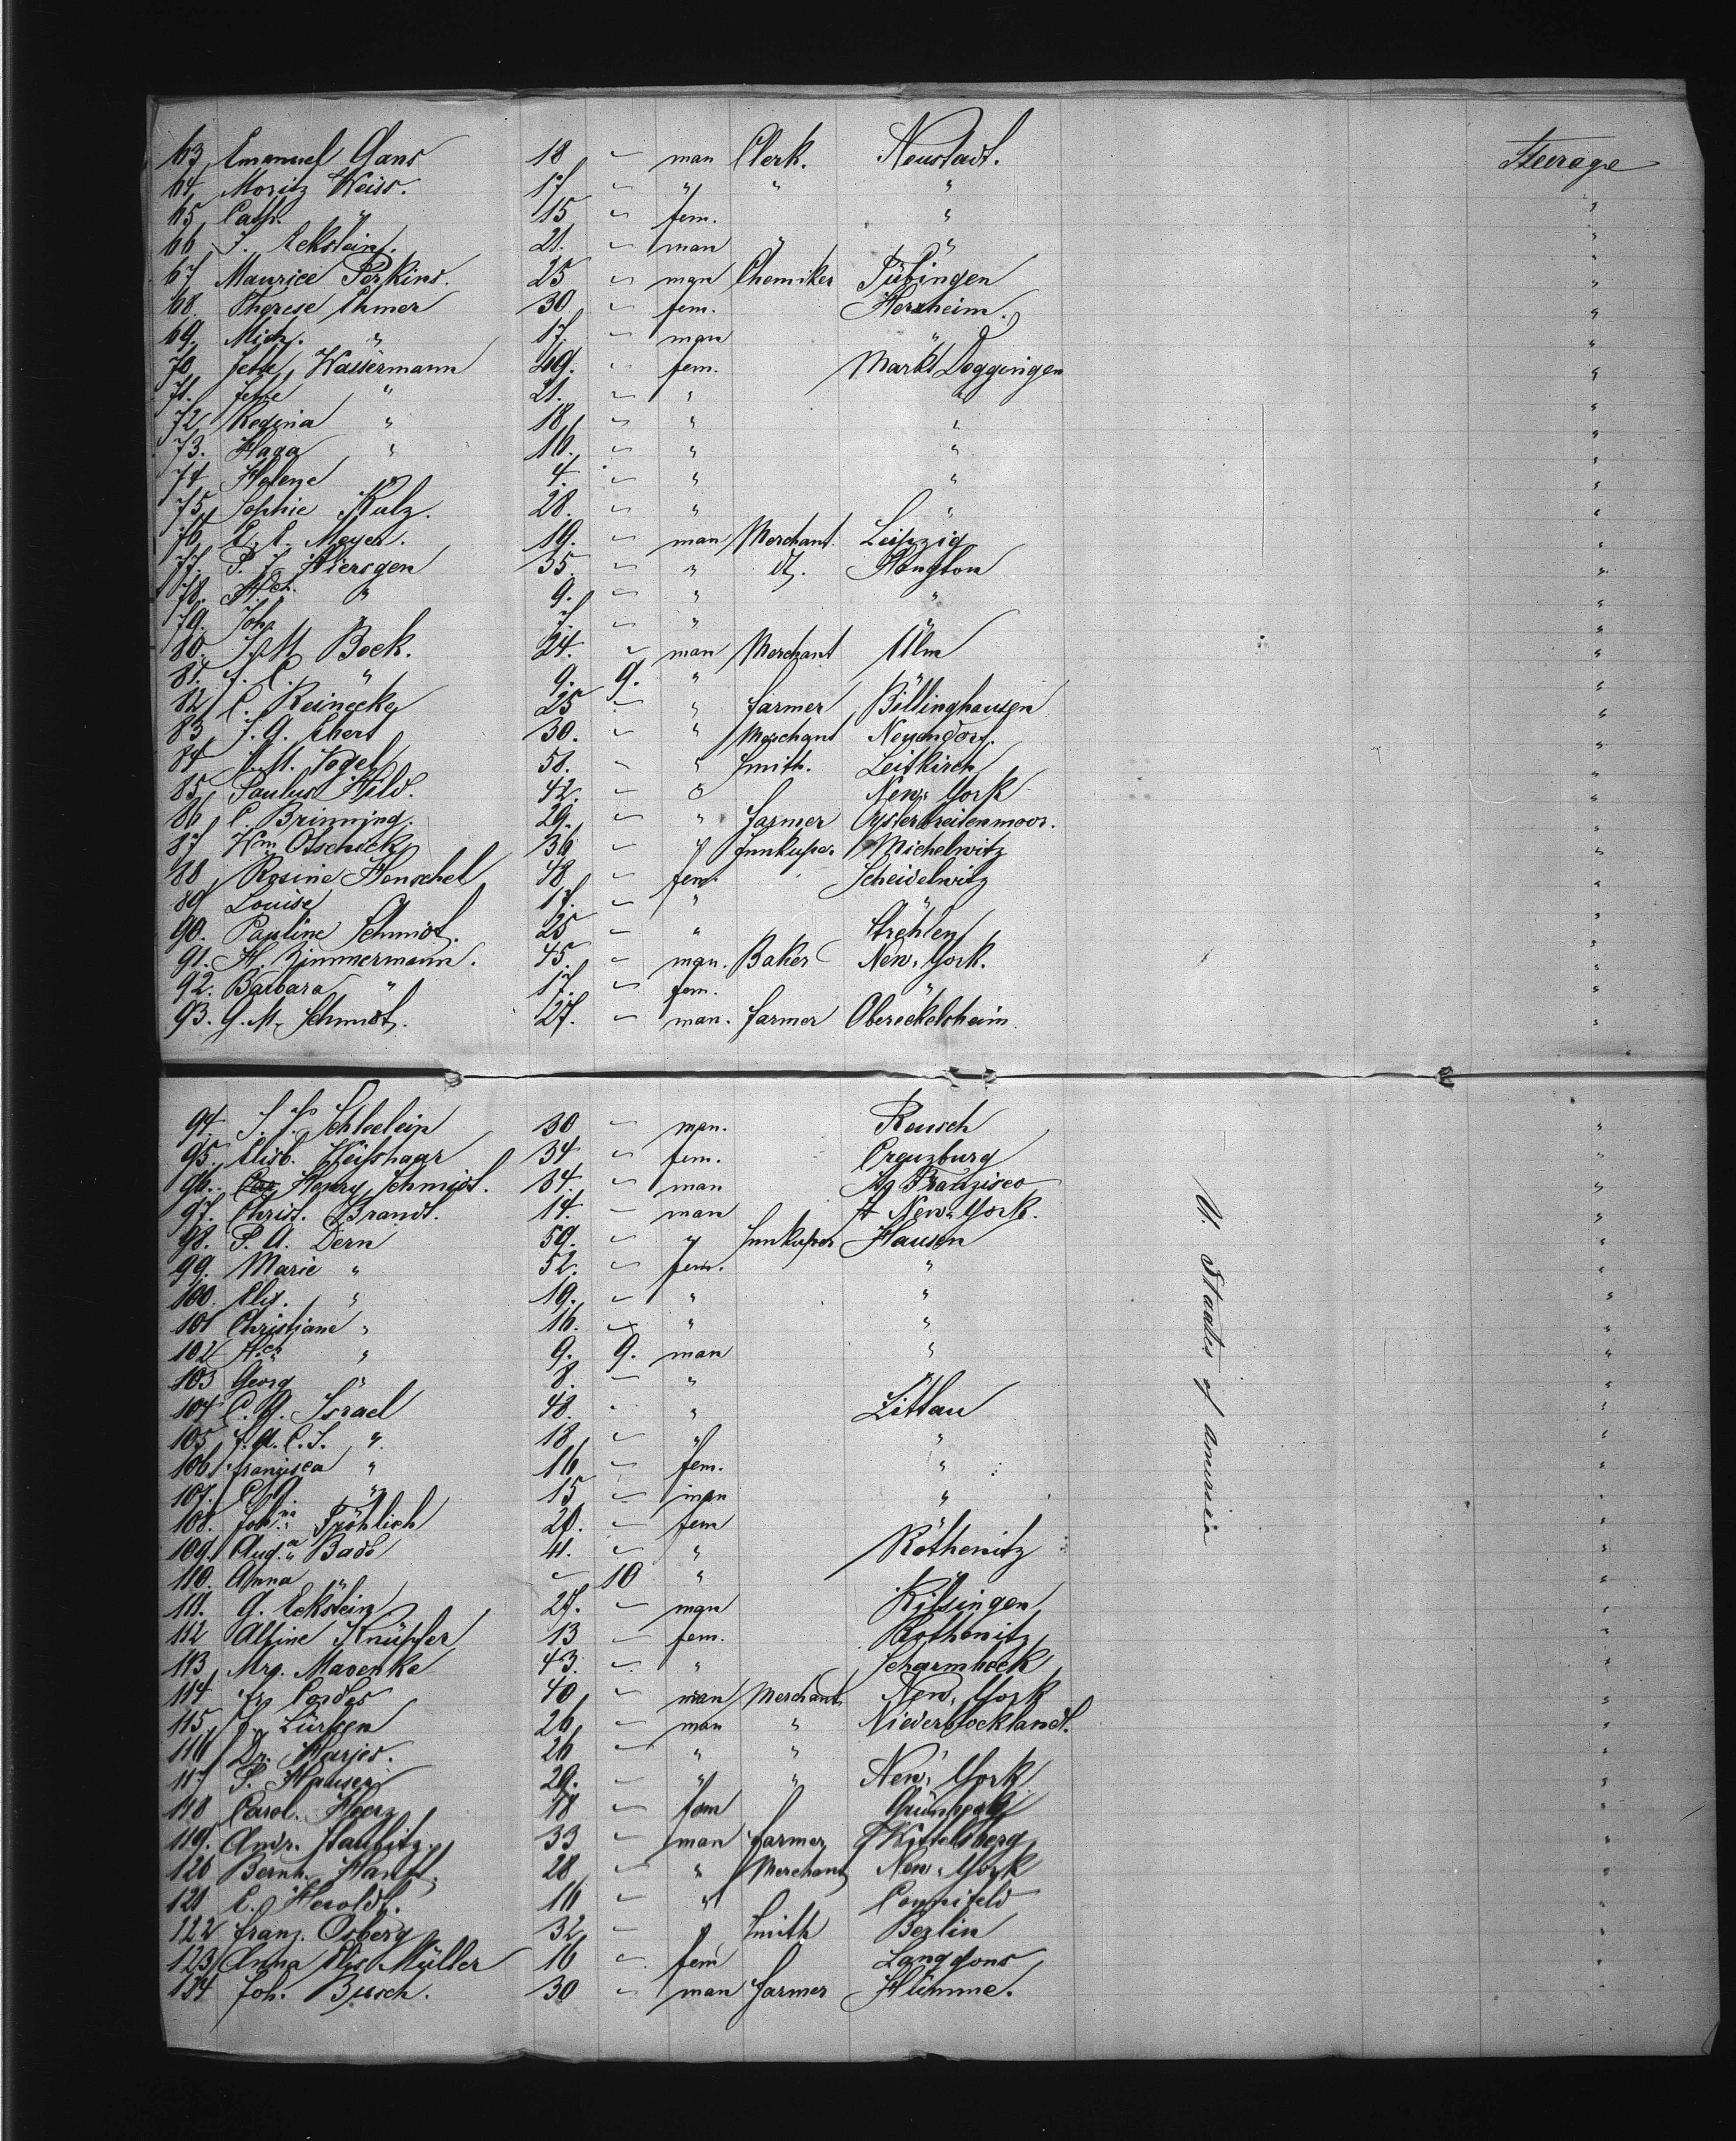 63. Emanuel Gans 18 – man Clerk. Neustadt. Steerage
64. Moritz Weiss. 17 – " " " "
65. Cath. " 15 – fem. " "
66. J. Eckstein. 21. – man " " "
67. Maurice Perkins. 25 – man Chemiker Tübingen "
68. Therese Ehmer 30 – fem. Herxheim. "
69. Mich. " 17. – man " "
70. Jette Wassermann 49. – fem. Markt Deggingen "
71. Jette " 21. – " " "
72. Regina " 18. – " " "
73. " 16. – " " "
74. Helene " 4. – " " "
75. Sophie Kulz. 28. – " " "
76. E. E. Meyer. 19. – man Merchant. Leipzig "
77. P. J. Hiersgen 35. – " do. "
78. Hch. " 9. – " " "
79. Joh. " 7. – " " "
80. J. M. Bock. 24. – man Merchant Ulm "
81. J. C. " 9. 9. " " "
82. C. Reinecke 25 – " farmer Billinghausen "
83. J. G. Ebert 30. – " Merchant Neuendorf. "
84. J. M. Vogel 58. – " Smith. Leitkirch "
85. Paulus Hild. 42. – " New-York "
86. C. Brinning. 29. – " farmer Oysterbreitenmoor. "
87. Wm. Otschick 36 – " Innkeper. Michelwitz "
88. Rosine Henschel 48. – fem. Scheidelwitz "
89. Louise " 17. – " " "
90. Pauline Schmidt. 25 – " Strehlen "
91. H. Zimmermann. 45. – man. Baker New-York. "
92. Barbara " 17. – fem. " "
93. G. M. Schmidt. 27. – man. farmer Obereckelsheim. "
94. J. J. Schleelein 30 – man. Reusch "
95. Elisb. Weisshaar 34 – fem. Creuzburg "
96. Henry Schmidt. 34. – man Franzisco "
97. Christ. Brandt. 14. – man New-York. "
98. P. A. Dern 59. – " Innkeper Hausen "
99. Marie " 52. – fem. " "
100. Elis. " 19. – " " "
101 Christiane " 16. – " " "
102 Hch. " 9. 9. man " "
103 Georg " 8. – " "
104 C. G. Israel 48. – " Zittau "
105 F. A. C. J. " 18. – " " "
106. Franzisca " 16 – fem. " "
107. " 15 – man " "
108. Johna. Fröhlich 20. – fem "
109. Auga. Bade 41. – " Röthenitz "
110. Anna " – 10 " "
111. G. Eckstein 27. – man Kitsingen "
112 Alfine Knüpfer 13 – fem. Rothenitz "
113 Mrg. Masenke 43. – " Scharmbeck "
114 Cordes 40. – man Merchant New-York "
115 J. Lürsen 26. – man " Niederblockland. "
116 Dr. Harjes. 26 – " " "
117 P. Hauser 29. – " " New-York "
118 Carol. Herz 18 – fem "
119. Andr. Staubitz. 33 – man farmer Kittelsberg "
120 Bernh. Hanft. 28 – " Merchant New-York "
121 E. Heroldt. 16 – " "
122 Franz. Osberg 32 – " Smith Berlin "
123 Anna Elis. Müller 16 – fem Langgöns "
134 Joh. Busch. 30 – man farmer Hümme. "
U. Staates of america